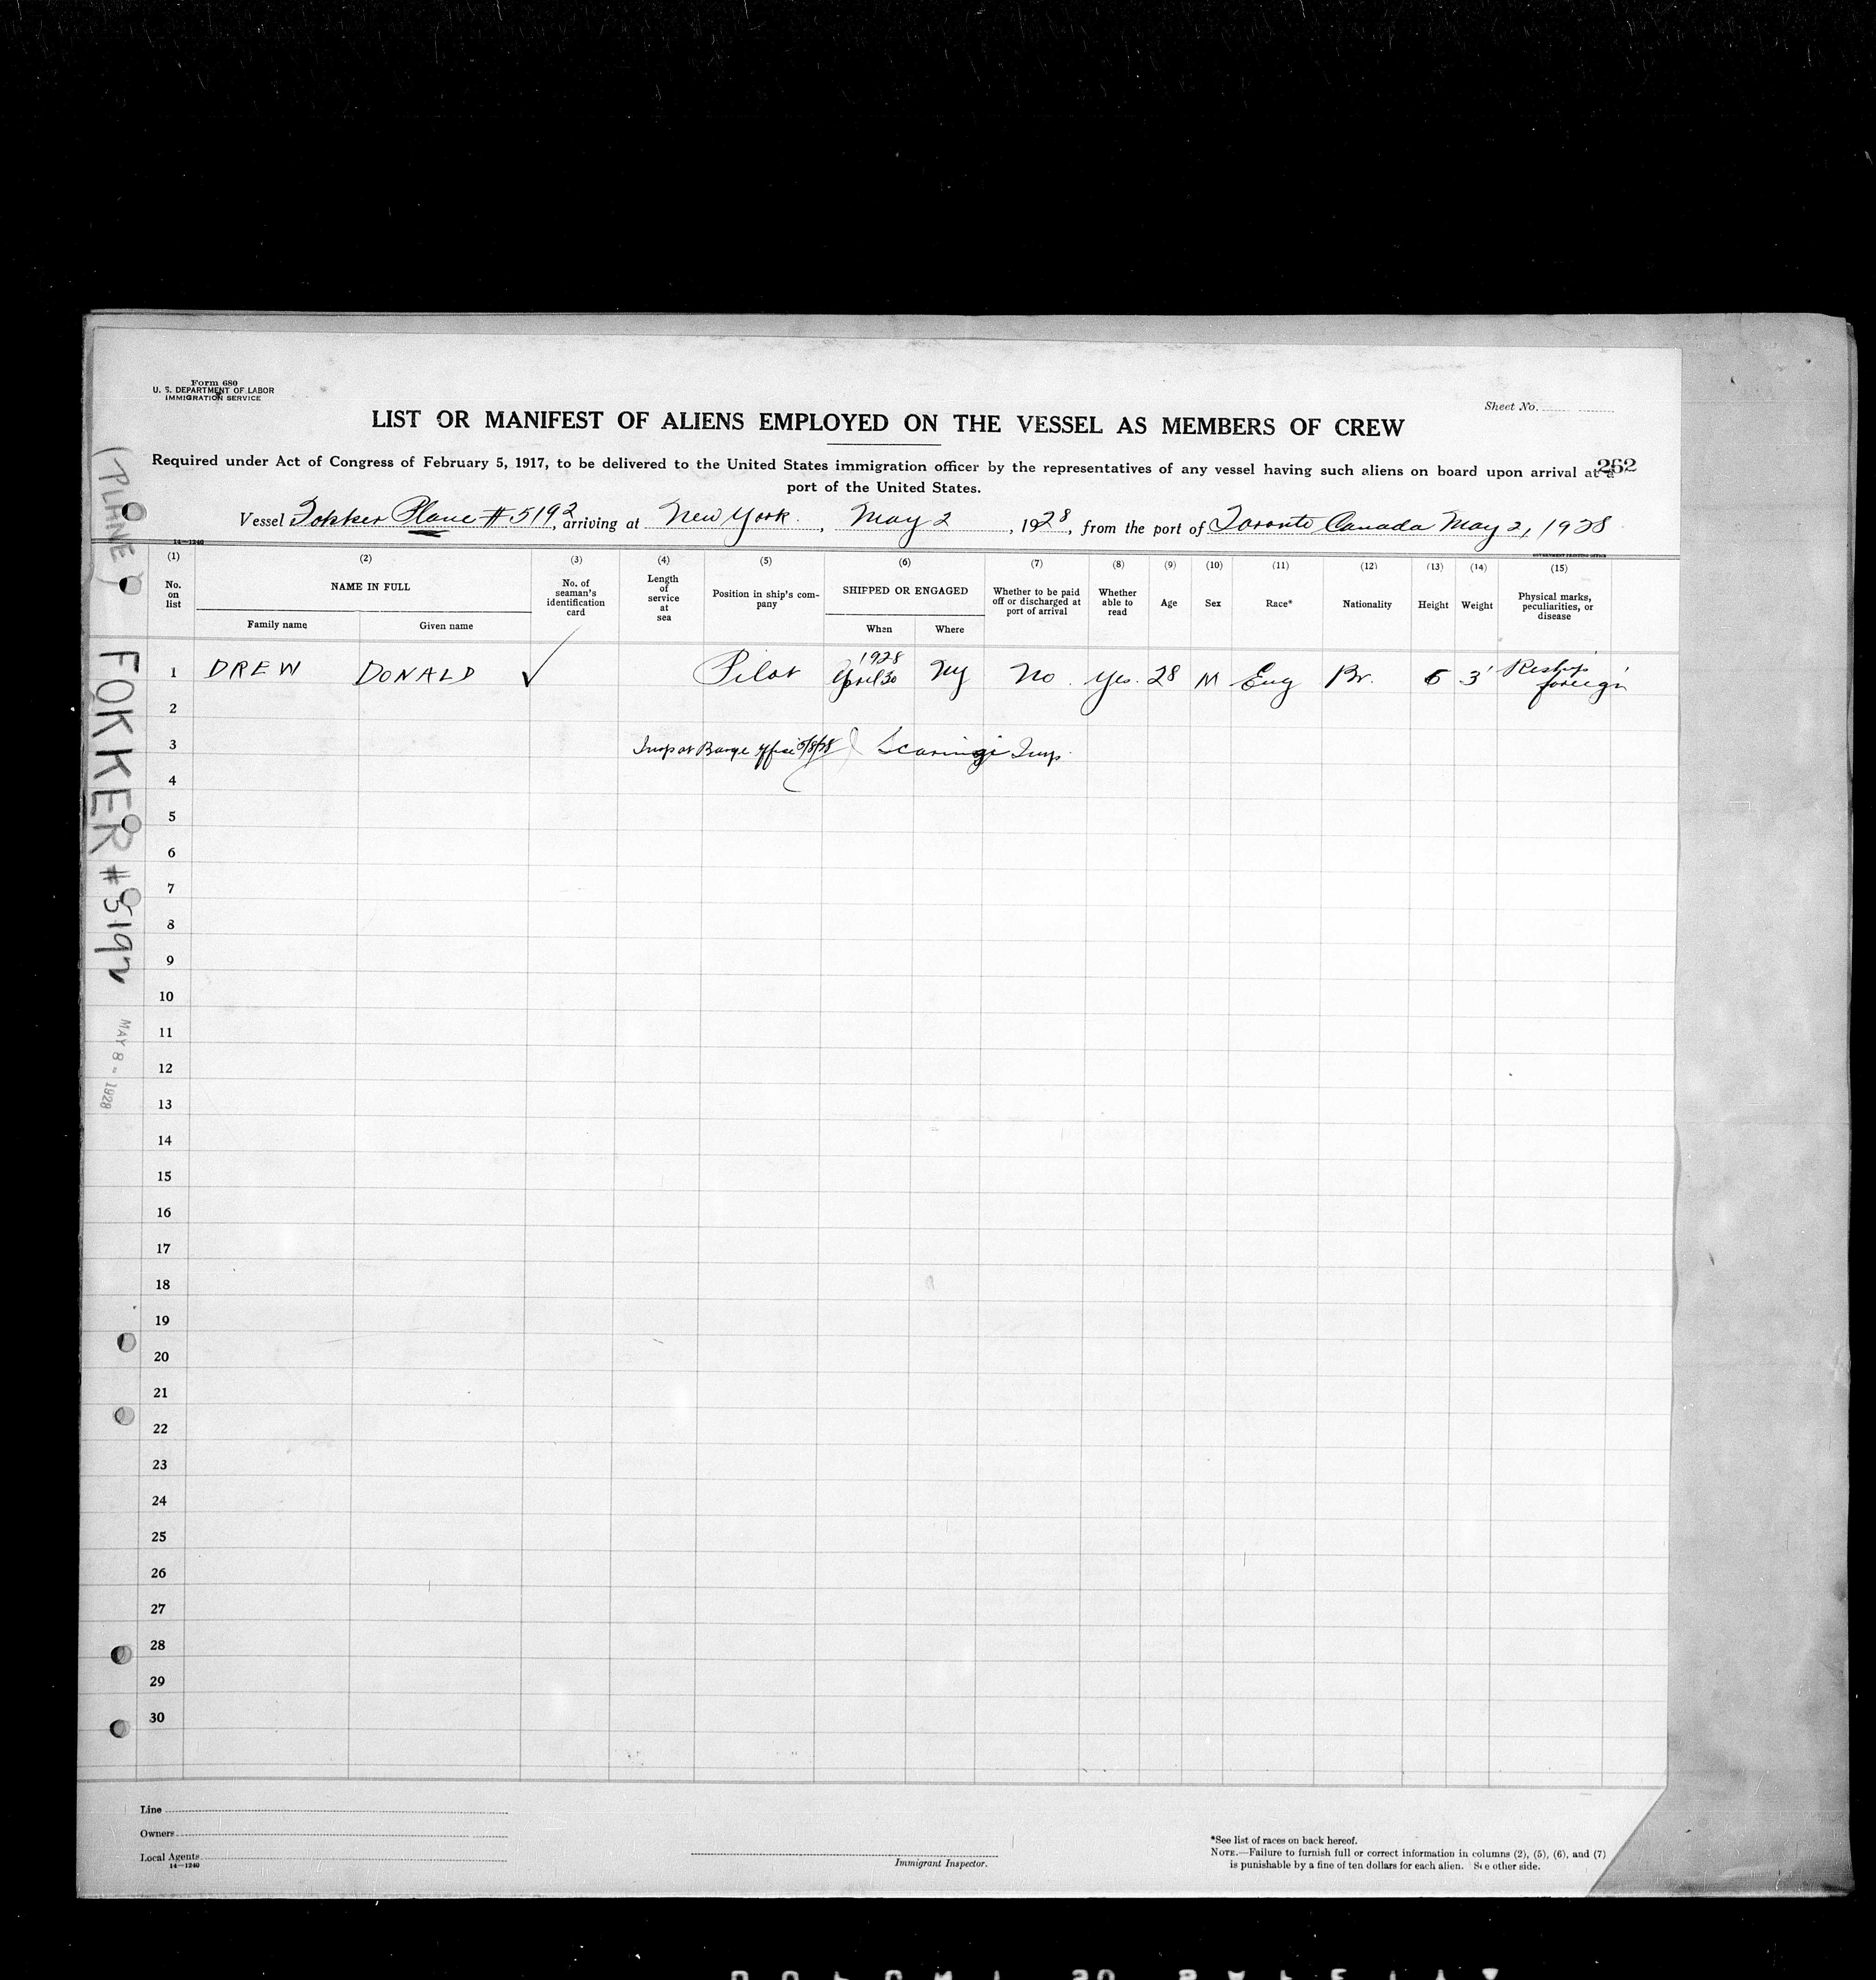 Form 680
U. S. DEPARTMENT OF LABOR
IMMIGRATION SERVICE
Sheet No.
LIST OR MANIFEST OF ALIENS EMPLOYED ON THE VESSEL AS MEMBERS OF CREW
262
Required under Act of Congress of February 5, 1917, to be delivered to the United States immigration officer by the representatives of any vessel having such aliens on board upon arrival at a
port of the United States.
Vessel Fokker Plane # 5192, arriving at New York, May 2, 1928, from the port of Toronto Canada May 2, 1928
14—1240
GOVERNMENT PRINTING OFFICE
(1) (2) (3) (4) (5) (6) (7) (8) (9) (10) (11) (12) (13) (14) (15)
No. on list
NAME IN FULL
Family name Given name
No. of seaman's identification card
Length of service at sea
Position in ship's company
SHIPPED OR ENGAGED
When Where
Whether to be paid off or discharged at port of arrival
Whether able to read
Age
Sex
Race*
Nationality
Height
Weight
Physical marks, peculiarities, or disease
1 DREW DONALD ✓ Pilot 1928 April 30 NY No. Yes. 28 M Eng Br. 6 3' Reship foreign
2
3 Insp at Barge Office 5/8/28 Scaringi Insp.
4
5
6
7
8
9
10
11
12
13
14
15
16
17
18
19
20
21
22
23
24
25
26
27
28
29
30
(PLANE) FOKKER # 5192
MAY 8 = 1928
Line
Owners
Local Agents
14—1240
Immigrant Inspector.
*See list of races on back hereof.
NOTE.—Failure to furnish full or correct information in columns (2), (5), (6), and (7)
is punishable by a fine of ten dollars for each alien. See other side.